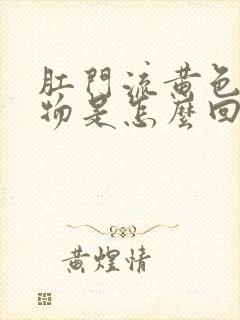 肛門流黄色
物是怎麼回
黄煌情